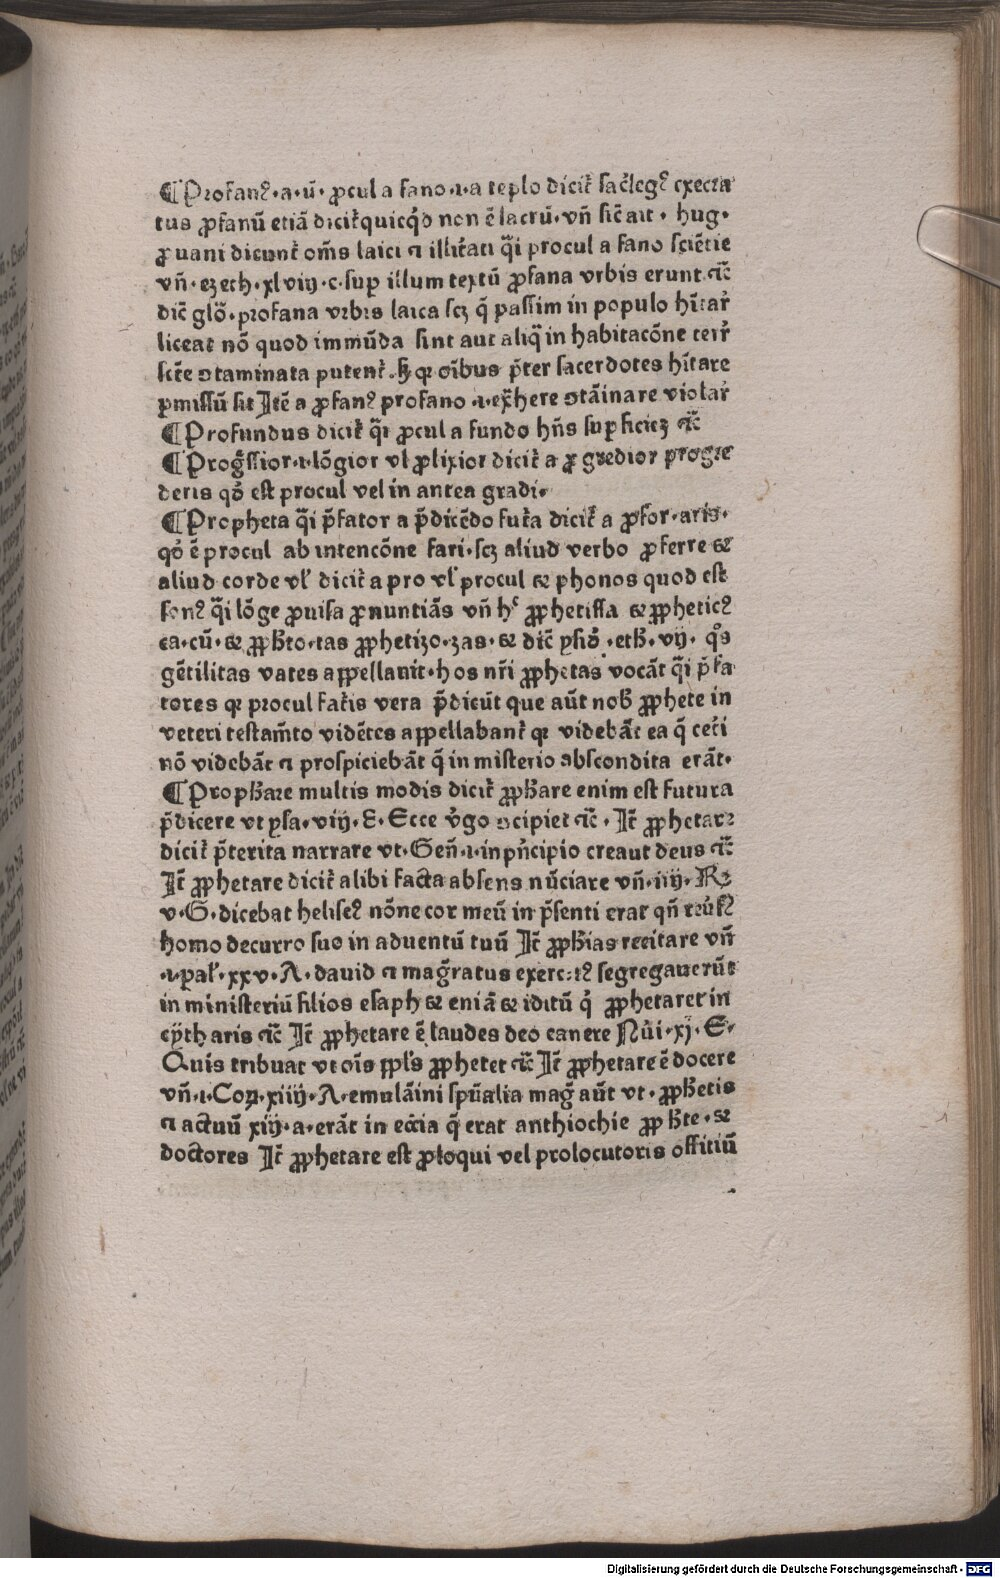 ¶Profanꝰ·a·ū· ꝓcul a fano·i·a tēplo dicit᷑ sac̄legꝰ execra
tus ꝓfanū etiā dicit᷑ quicq̇d non ē sacrū·vn̄ sic̄ ait· hug·
ꝓuani dicunt᷑ om̄s laici ⁊ illit̄ati q̄i procul a fano sciētie
vn̄·ezech·xlviij·c·sup illum textū ꝓfana vrbis erunt ⁊c̄
dic̄ glo᷑·profana vrbis laica scꝫ q̄ passim in populo hītar᷑
liceat nō quod immūda sint aut aliq̄ in habitacōne terr᷑
sc̄te ↄtaminata putent᷑ .sꝫ qꝛ oībus p̄ter sacerdotes hītare
ꝑmissū sit Itē a ꝓfanꝰ profano ·i·ex̄here ↄtāinare violar᷑
¶Profundus dicit᷑ q̄i ꝓcul a fundo hn̄s suꝑficiē ⁊c̄
¶Proḡssior·i·lōgior vl̓ ꝓlixior dicit᷑ a ꝓ gredior progre
deris qō est procul vel in antea gradi·
¶Propheta q̄i p̄fator a p̄dicēdo fut᷑a dicit᷑ a ꝓfor·aris·
qō ē procul ab intencōne fari·scꝫ aliud verbo ꝓferre ⁊
aliud corde vl̓ dicit᷑ a pro vl̓ procul ⁊ phonos quod est
sonꝰ q̄i lōge ꝓuisa ꝓnuntiās vn̄ hͨ ꝓphetissa ⁊ ꝓpheticꝰ
ca·cū·⁊ ꝓph̄to·tas ꝓphetizo·zas·⁊ dic̄ ysid̄·eth̄·vij· qͦs
gētilitas vates appellauit·hos nr̄i ꝓphetas vocāt q̄i p̄fa
tores qꝛ procul fat᷑is vera p̄dicūt que aūt nob̄ ꝓphete in
veteri testam̄to vidētes appellabant᷑ qꝛ videbāt ea q̄ cet᷑i
nō videbāt ⁊ prospiciebāt q̄ in misterio abscondita erāt·
¶Proph̄are multis modis dicit᷑ ꝓph̄are enim est futura
p̄dicere vt ysa·viij·E·Ecce v̄go ↄcipiet ⁊c̄· It̄ ꝓphetare
dicit᷑ p̄terita narrare vt·Gen̄·i·in pn̄cipio creauit deus ⁊c̄
It̄ ꝓphetare dicit᷑ alibi facta absens nūciare vn̄·iiij·Re
v·G·dicebat heliseꝰ nōne cor meū in p̄senti erat qn̄ reu᷑sꝰ
homo de curro suo in aduentū tuū It̄ ꝓph̄ias recitare vn̄
·i·pal̓·xxv·A·dauid ⁊ maḡratus exercitꝰ segregauerūt
in ministeriū filios esaph ⁊ eniā ⁊ iditū q̇ ꝓphetaret in
cytharis ⁊c̄ It̄ ꝓphetare ē laudes deo canere Nūi·xj·E·
Quis tribuat vt oīs ppl̓s ꝓphetet ⁊c̄ It̄ ꝓphetare ē docere
vn̄·i·Coꝝ·xiiij·A·emulāini spūalia mag̅ aūt vt·ꝓph̄etis
⁊ actuū xiij·a·erāt in ecc̄ia q̄ erat anthiochie ꝓph̄te·⁊
doctores It̄ ꝓphetare est ꝓloqui vel prolocutoris offitiū
Digitalisierung gefördert durch die Deutsche Forschungsgemeinschaft · DFG